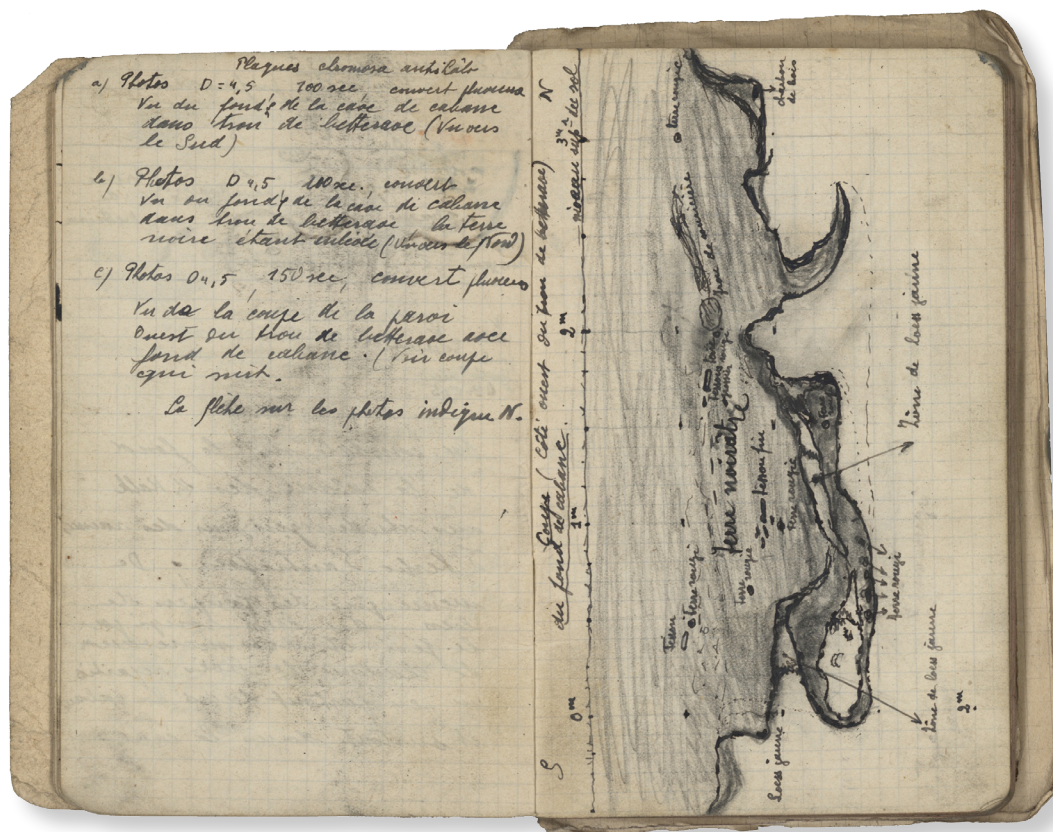 Plaques chromosa antihalo
a) Photos D=4,5 100 sec couvert pluvieux
Vu du fond de la cave de cabane
dans trou de betterave (Vu vers
le Sud)
b) Photos D 4,5 100 sec. couvert
Vu du fond de la cave de cabane
dans trou de betterave la terre
noire étant enlevée (Vu vers le Nord)
c) Photos D 4,5, 150 sec, couvert pluvieux
Vu de la coupe de la paroi
Ouest du trou de betterave avec
fond de cabane. (Voir coupe
qui suit.
La flèche sur les photos indique N.
Coupe (côté ouest du trou de betterave)
du fond de cabane.
S
N
0m
1m
2m
3m
niveau supr du sol
terre rougie
charbon de bois
Terre noirâtre
tesson fin
terre rougie
terre rougie
tesson
terre rougie
terre rougie
Loess jaune
Zône de loess jaune
Zône de loess jaune
2m